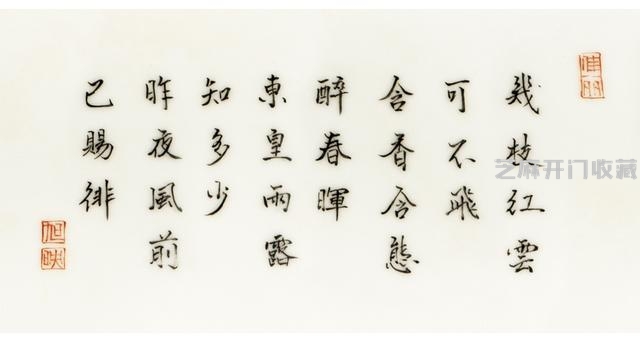 幾枝紅雲
可不飛
含香含態
醉春暉
東皇雨露
知多少
昨夜風前
已賜緋
旭映
芝麻开门收藏